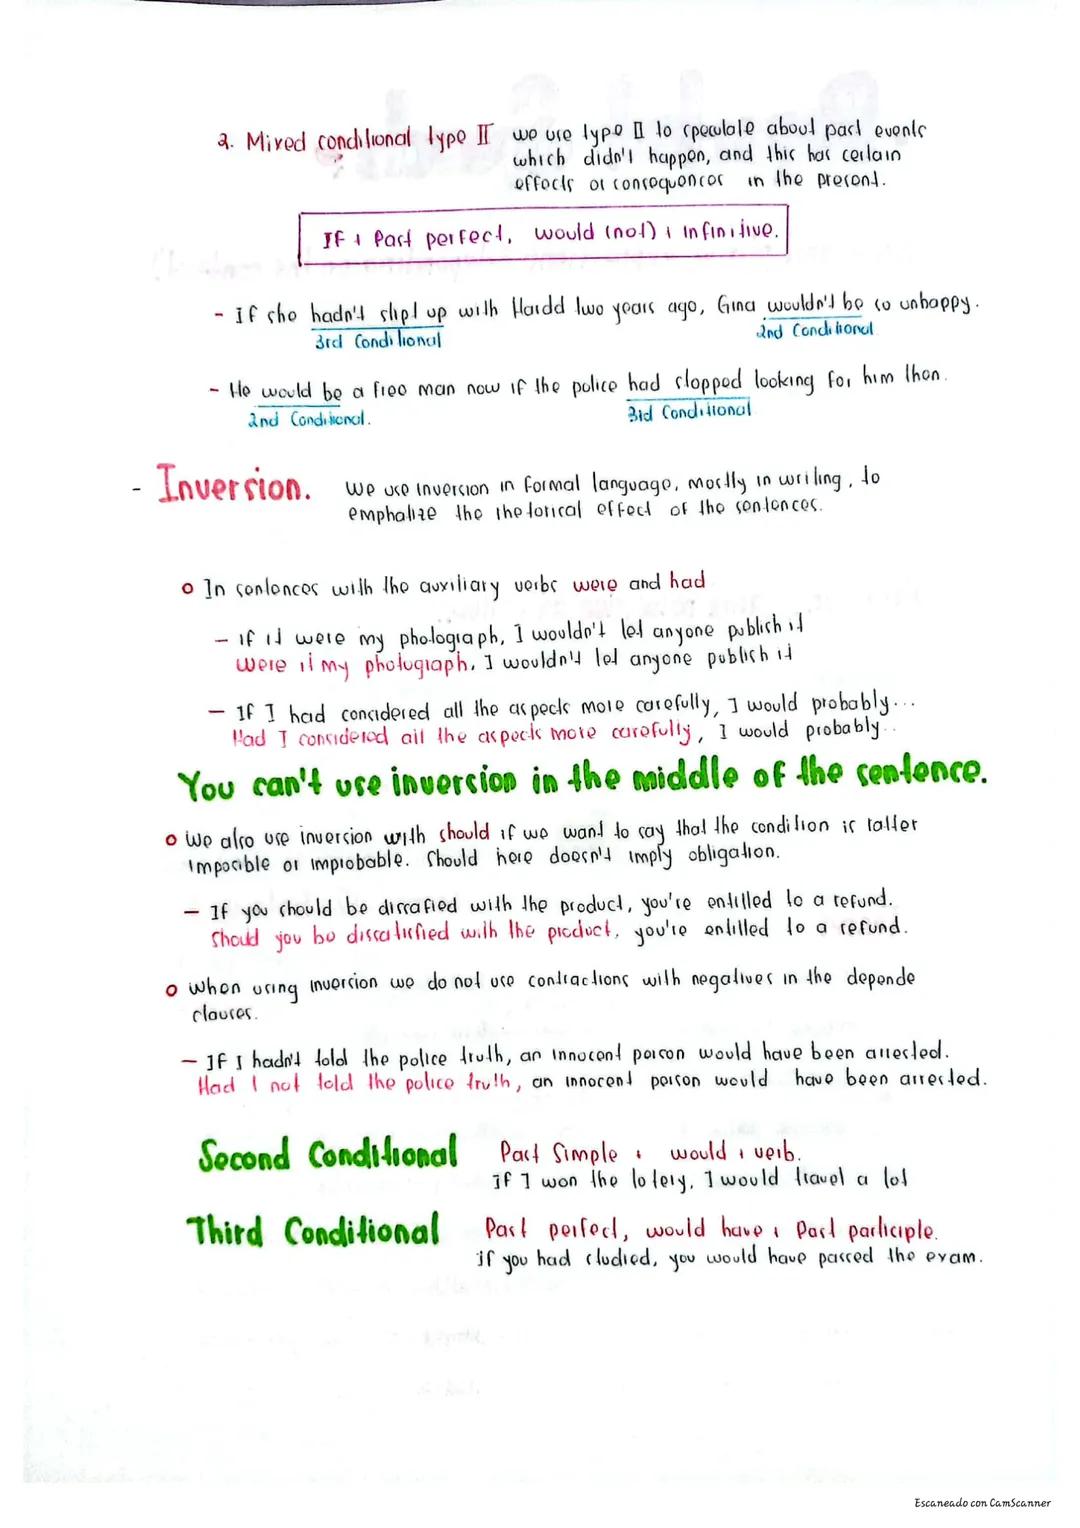 2. Mixed conditional type II we use type II to speculate about past events
which didn't happen, and this has certain
effects or consequences in the present.
If + Past perfect, would (not) + infinitive.
- If she hadn't split up with Haidd two years ago, Gina wouldn't be so unhappy.
3rd Conditional 2nd Conditional
- He would be a free man now if the police had stopped looking for him then.
2nd Conditional. 3rd Conditional
- Inversion. We use inversion in formal language, mostly in writing, to
emphalize the rhetorical effect of the sentences.
o In sentences with the auxiliary verbs were and had
- if it were my photograph, I wouldn't let anyone publish it
Were it my photograph, I wouldn't let anyone publish it
- If I had considered all the aspects more carefully, I would probably...
Had I considered all the aspects more carefully, I would probably...
You can't use inversion in the middle of the sentence.
o We also use inversion with should if we want to say that the condition is ratter
imposible or improbable. Should here doesn't imply obligation.
- If you should be dissafied with the product, you're entitled to a refund.
Should you be dissatisfied with the product, you're entitled to a refund.
o When using inversion we do not use contractions with negatives in the depende
clauses.
- If I hadn't told the police truth, an innocent person would have been arrested.
Had I not told the police truth, an innocent person would have been arrested.
Second Conditional Past Simple + would + verb.
If I won the lotery, I would travel a lot
Third Conditional Past perfect, would have + Past participle.
if you had studied, you would have passed the exam.
Escaneado con CamScanner